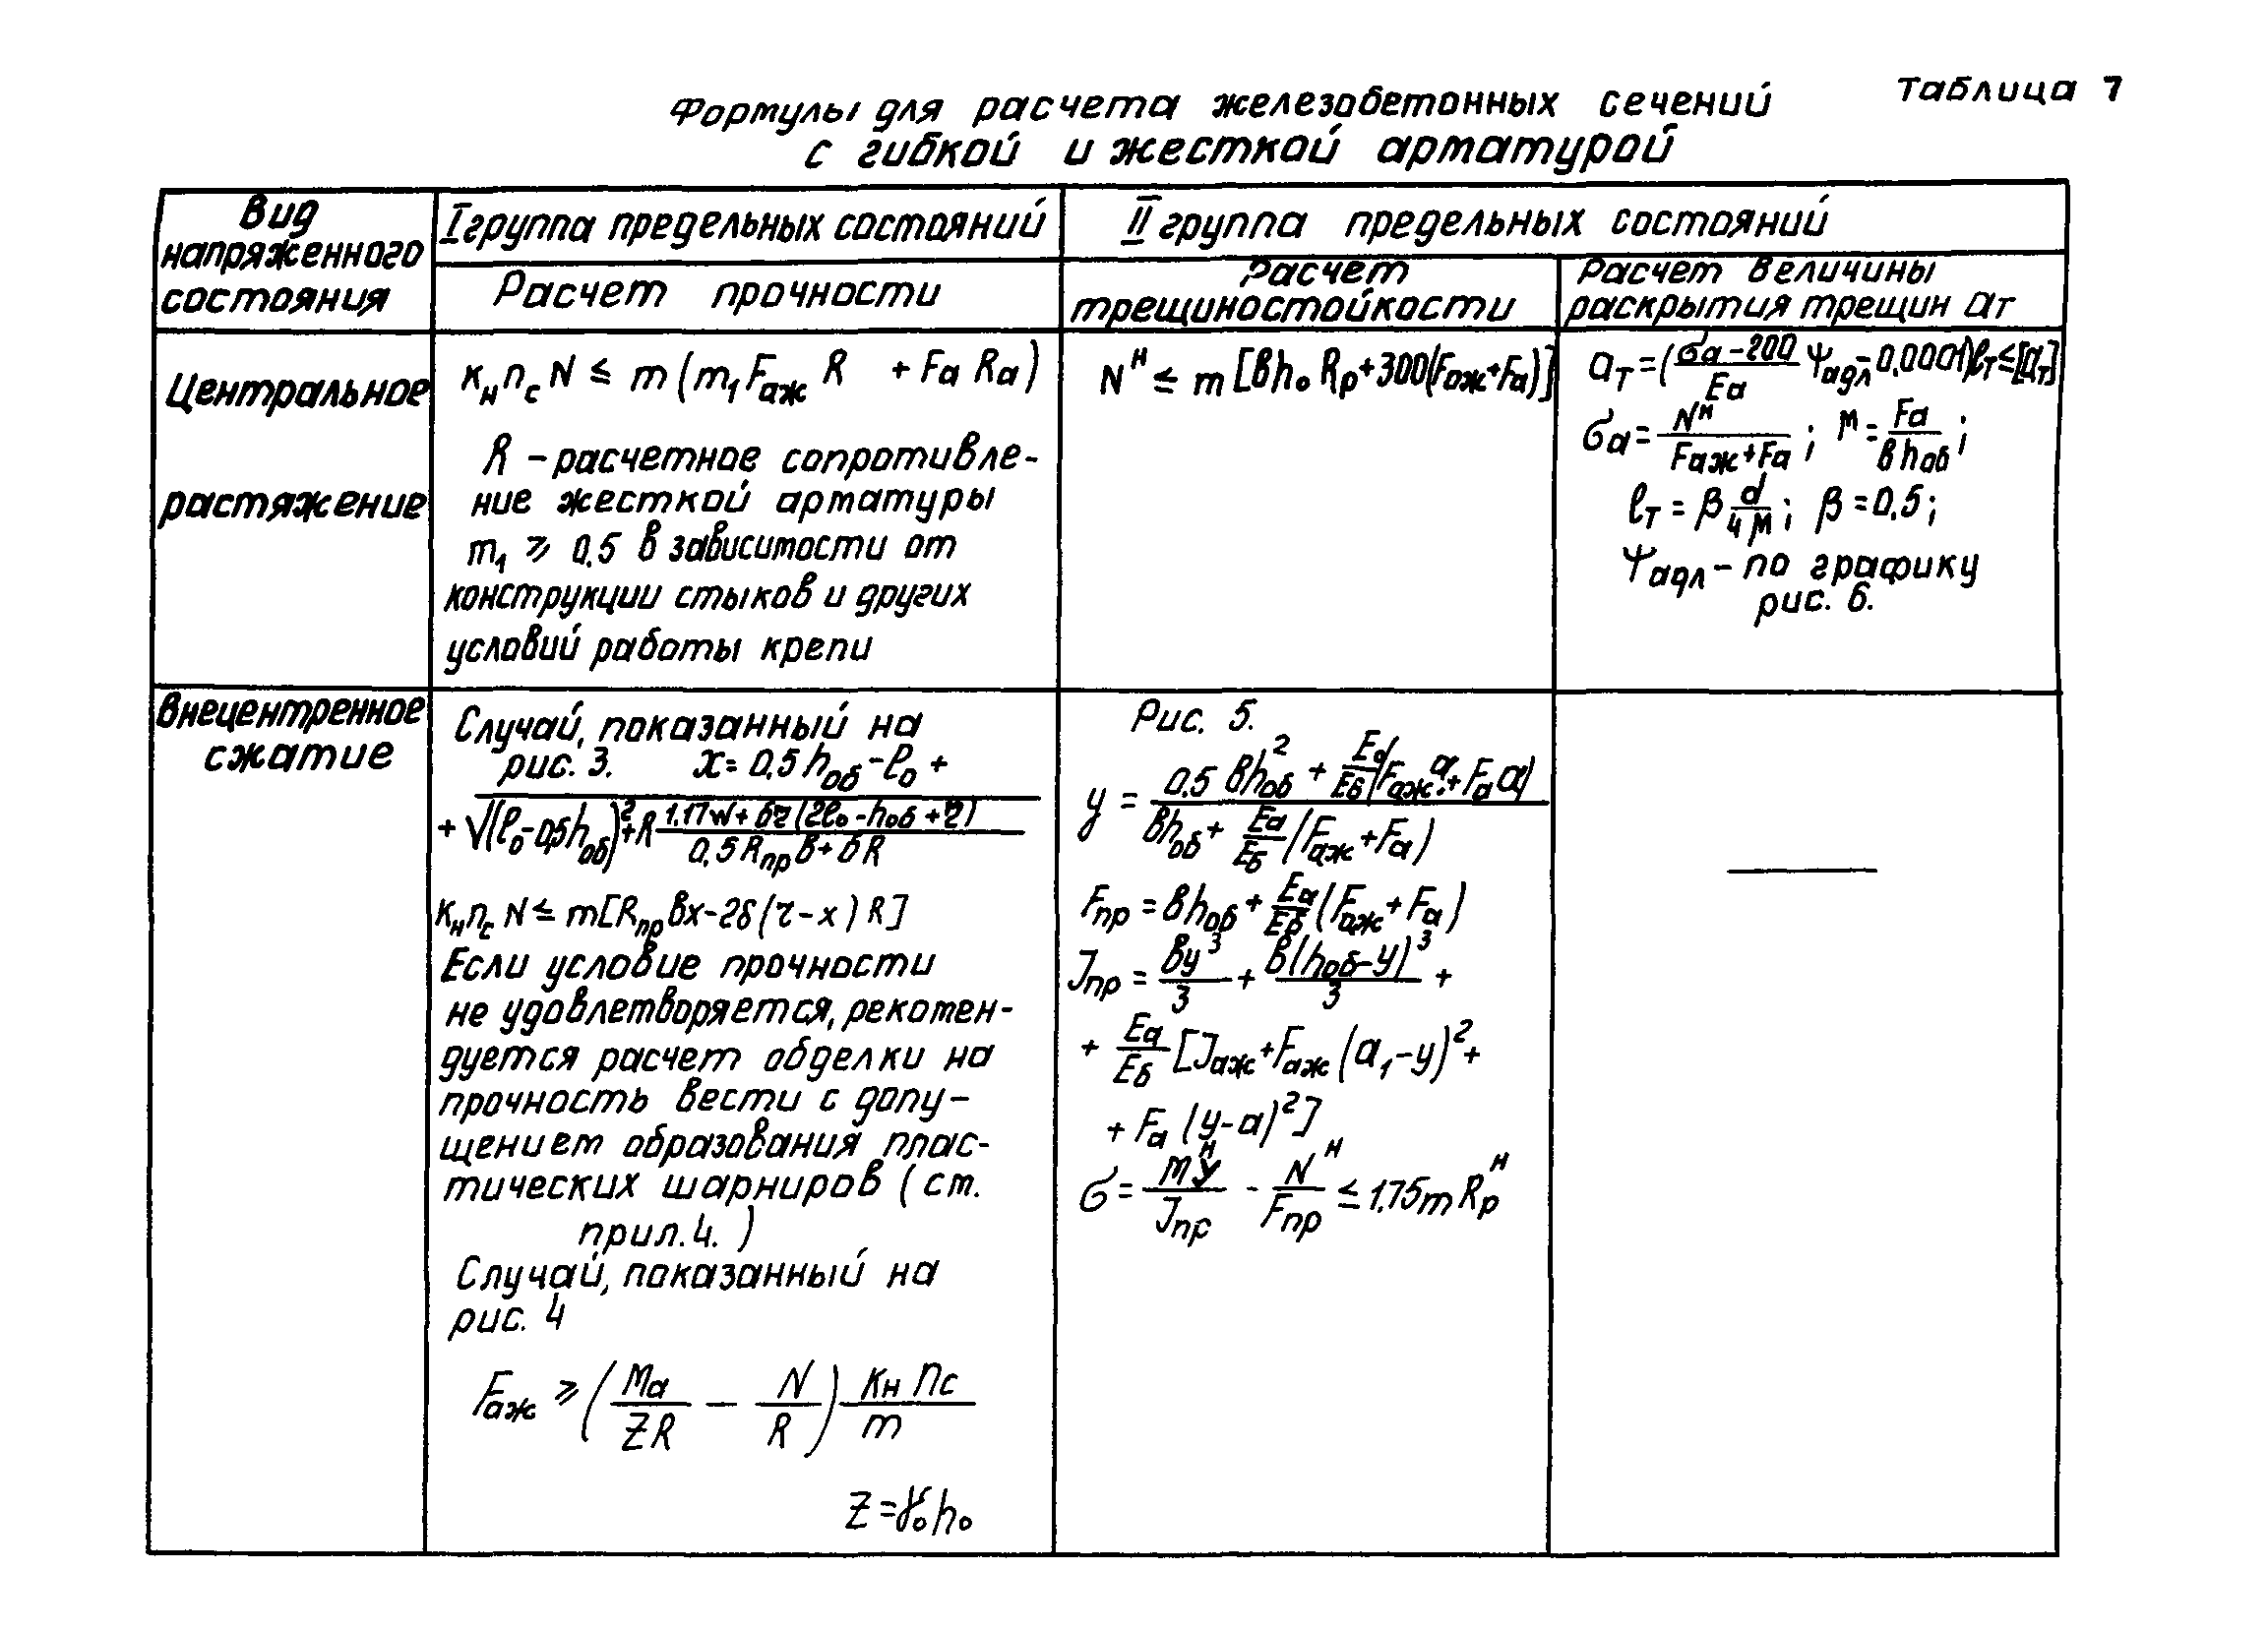 Таблица 7
Формулы для расчета железобетонных сечений
с гибкой и жесткой арматурой
Вид
напряженного
состояния
I группа предельных состояний
II группа предельных состояний
Расчет прочности
Расчет
трещиностойкости
Расчет величины
раскрытия трещин aт
Центральное
растяжение
кн nс N ≤ m (m1 Fаж R + Fа Rа)
R – расчетное сопротивле-
ние жесткой арматуры
m1 ≥ 0.5 в зависимости от
конструкции стыков и других
условий работы крепи
N^н ≤ m [вh₀ Rр + 300(Fаж + Fа)]
aт = ((σа – 200)/Eа Ψадл – 0.0001) ℓт ≤ [aт]
σа = N^н/(Fаж + Fа); м = Fа/(в hоб);
ℓт = β d/(4м); β = 0.5;
Ψадл – по графику
рис. 6.
Внецентренное
сжатие
Случай, показанный на
рис. 3. x = 0.5 hоб – ℓ₀ +
+ √((ℓ₀ – 0,5hоб)² + R (1.17W + δτ(2ℓ₀ – hоб + τ))/(0.5 Rпр в + δR))
кн nс N ≤ m [Rпр вx – 2δ(τ – x) R]
Если условие прочности
не удовлетворяется, рекомен-
дуется расчет обделки на
прочность вести с допу-
щением образования плас-
тических шарниров (см.
прил. 4.)
Случай, показанный на
рис. 4
Fаж ≥ (Mа/(ZR) – N/R) кн nс/m
Z = γ₀ h₀
Рис. 5.
y = (0.5 вhоб² + Eа/Eб (Fаж a₁ + Fа a))/(вhоб + Eа/Eб (Fаж + Fа))
Fпр = вhоб + Eа/Eб (Fаж + Fа)
Jпр = вy³/3 + в(hоб – y)³/3 +
+ Eа/Eб [Jаж + Fаж (a₁ – y)² +
+ Fа (y – a)²]
σ = M^н y/Jпр – N^н/Fпр ≤ 1.75 m Rр^н